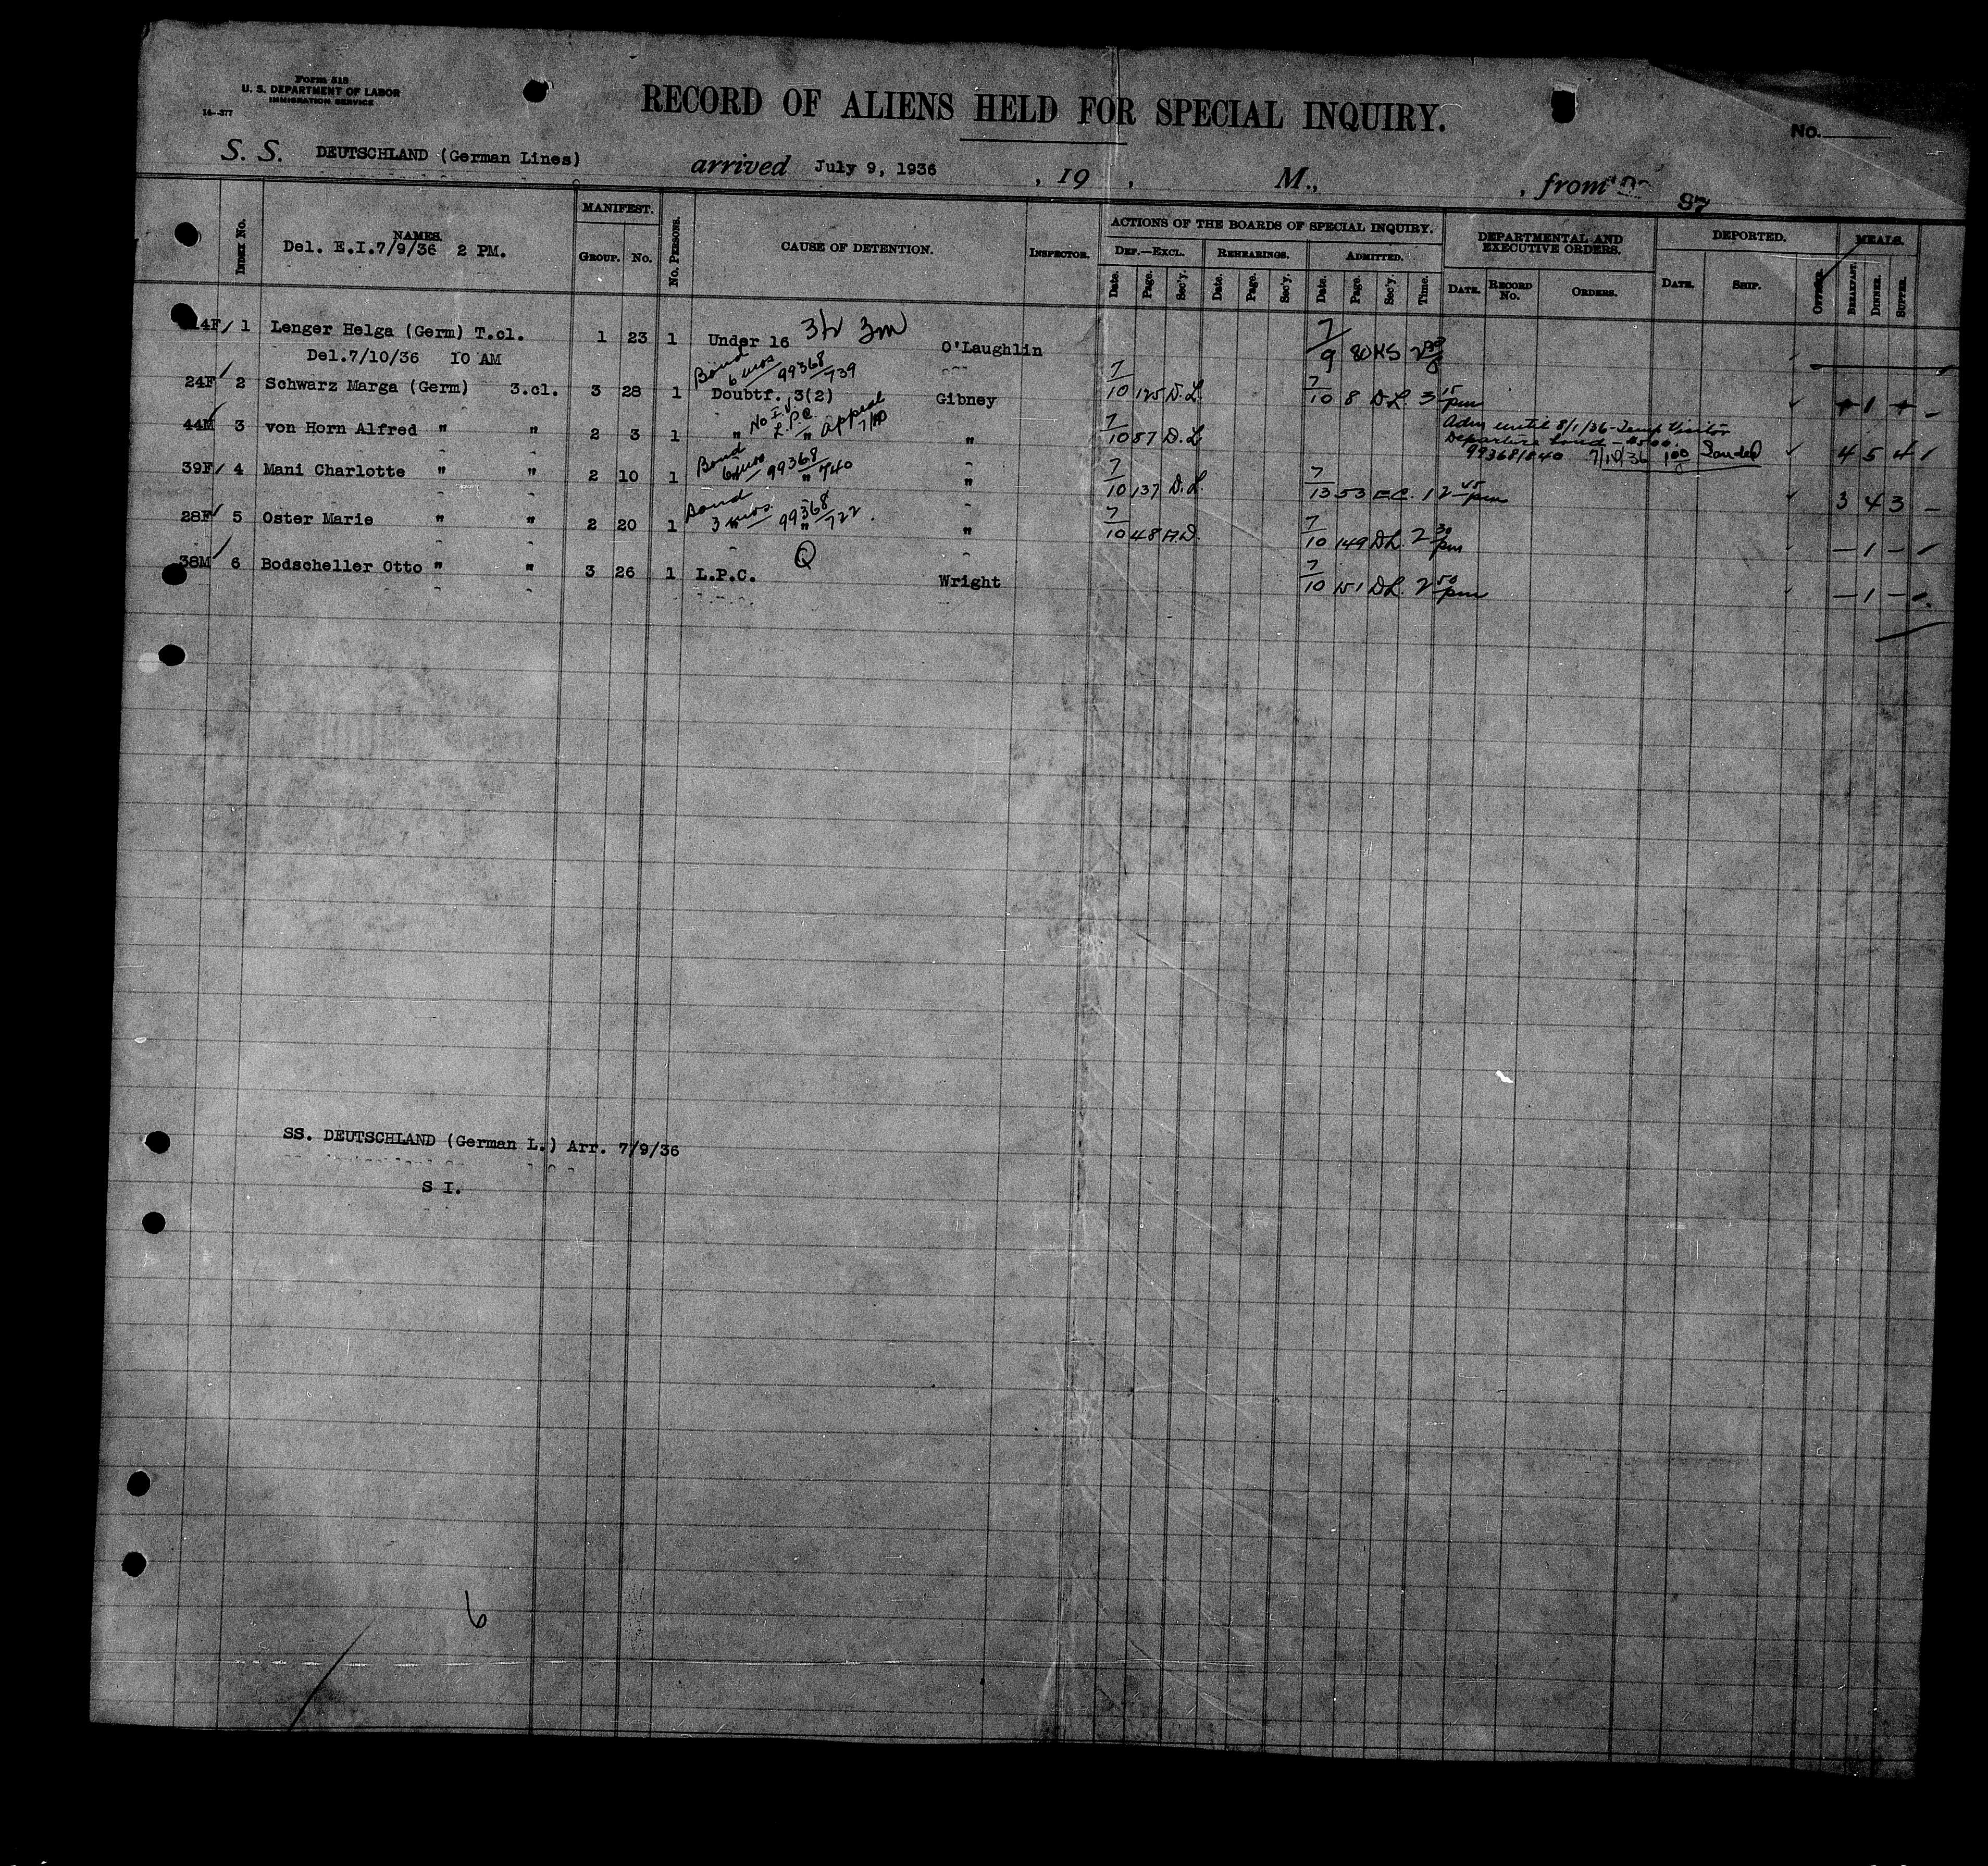 Form 518
U. S. DEPARTMENT OF LABOR
IMMIGRATION SERVICE
14--377
RECORD OF ALIENS HELD FOR SPECIAL INQUIRY.
No.
S. S. DEUTSCHLAND (German Lines) arrived July 9, 1936 , 19 , M., , from
87
INDEX No. NAMES. MANIFEST. GROUP. No. No. PERSONS. CAUSE OF DETENTION. INSPECTOR. ACTIONS OF THE BOARDS OF SPECIAL INQUIRY. DEF.—EXCL. Date. Page. Sec'y. REHEARINGS. Date. Page. Sec'y. ADMITTED. Date. Page. Sec'y. Time. DEPARTMENTAL AND EXECUTIVE ORDERS. DATE. RECORD No. ORDERS. DEPORTED. DATE. SHIP. OFFICER. MEALS. BREAKFAST. DINNER. SUPPER.
Del. E.I.7/9/36 2 PM.
14F 1 Lenger Helga (Germ) T.cl. 1 23 1 Under 16 O'Laughlin 7/9 80 HS
Del.7/10/36 10 AM
Bond 6 mos 99368/739
24F 2 Schwarz Marga (Germ) 3.cl. 3 28 1 Doubtf. 3(2) Gibney 7/10 125 D.L. 7/10 8 DL 3 15 pm 1
No I.V. L.P.C. Appeal 7/10
44M 3 von Horn Alfred " " 2 3 1 " " " 7/10 87 D.L. Adm until 8/1/36-Temp Visitor
Departure bond - $500.
7/10/36 Landed 4 5 4
Bond 6 mos 99368/740
39F 4 Mani Charlotte " " 2 10 1 " " 7/10 137 D.L. 7/13 53 E.C. 12 45 pm 3 4 3 -
Bond 3 mos 99368/722
28F 5 Oster Marie " " 2 20 1 " " 7/10 48 7/10 149 DL. 2 30 pm - 1 -
Q
38M 6 Bodscheller Otto " " 3 26 1 L.P.C. Wright 7/10 151 DL. 2 50 pm - 1 -
SS. DEUTSCHLAND (German L.) Arr. 7/9/36
S I.
6